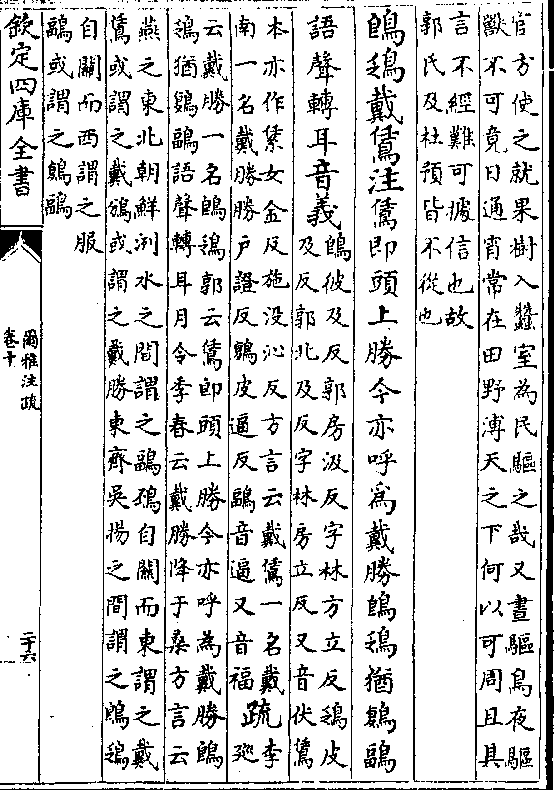 官方使之就果樹入蠶室為民驅之哉又晝驅鳥夜驅
獸不可竟日通宵常在田野溥天之下何以可周且其
言不經難可據信也故
郭氏及杜預皆不從也
鵖鴔戴鵀注鵀即頭上勝今亦呼為戴勝鵖鴔猶鶝鶔
語聲轉耳音義鵖彼及反郭房汲反字林方立反鴔皮
及反郭北及反字林房立反又音伏鵀
本亦作𩾾女金反施没沁反方言云戴鵀一名戴
南一名戴勝勝户證反鶝皮逼反鶔音逼又音福疏李
巡
云戴勝一名鵖鴔郭云鵀即頭上勝今亦呼為戴勝鵖
鴔猶鶝鶔語聲轉耳月令季春云戴勝降于桑方言云
燕之東北朝鮮洌水之間謂之鶝䲹自關而東謂之戴
鵀或謂之戴鳻或謂之戴勝東齊吳揚之間謂之鵖鴔
自關而西謂之服
鶝或謂之鶝鶔
欽定四庫全書
爾雅注疏
卷十
二十六